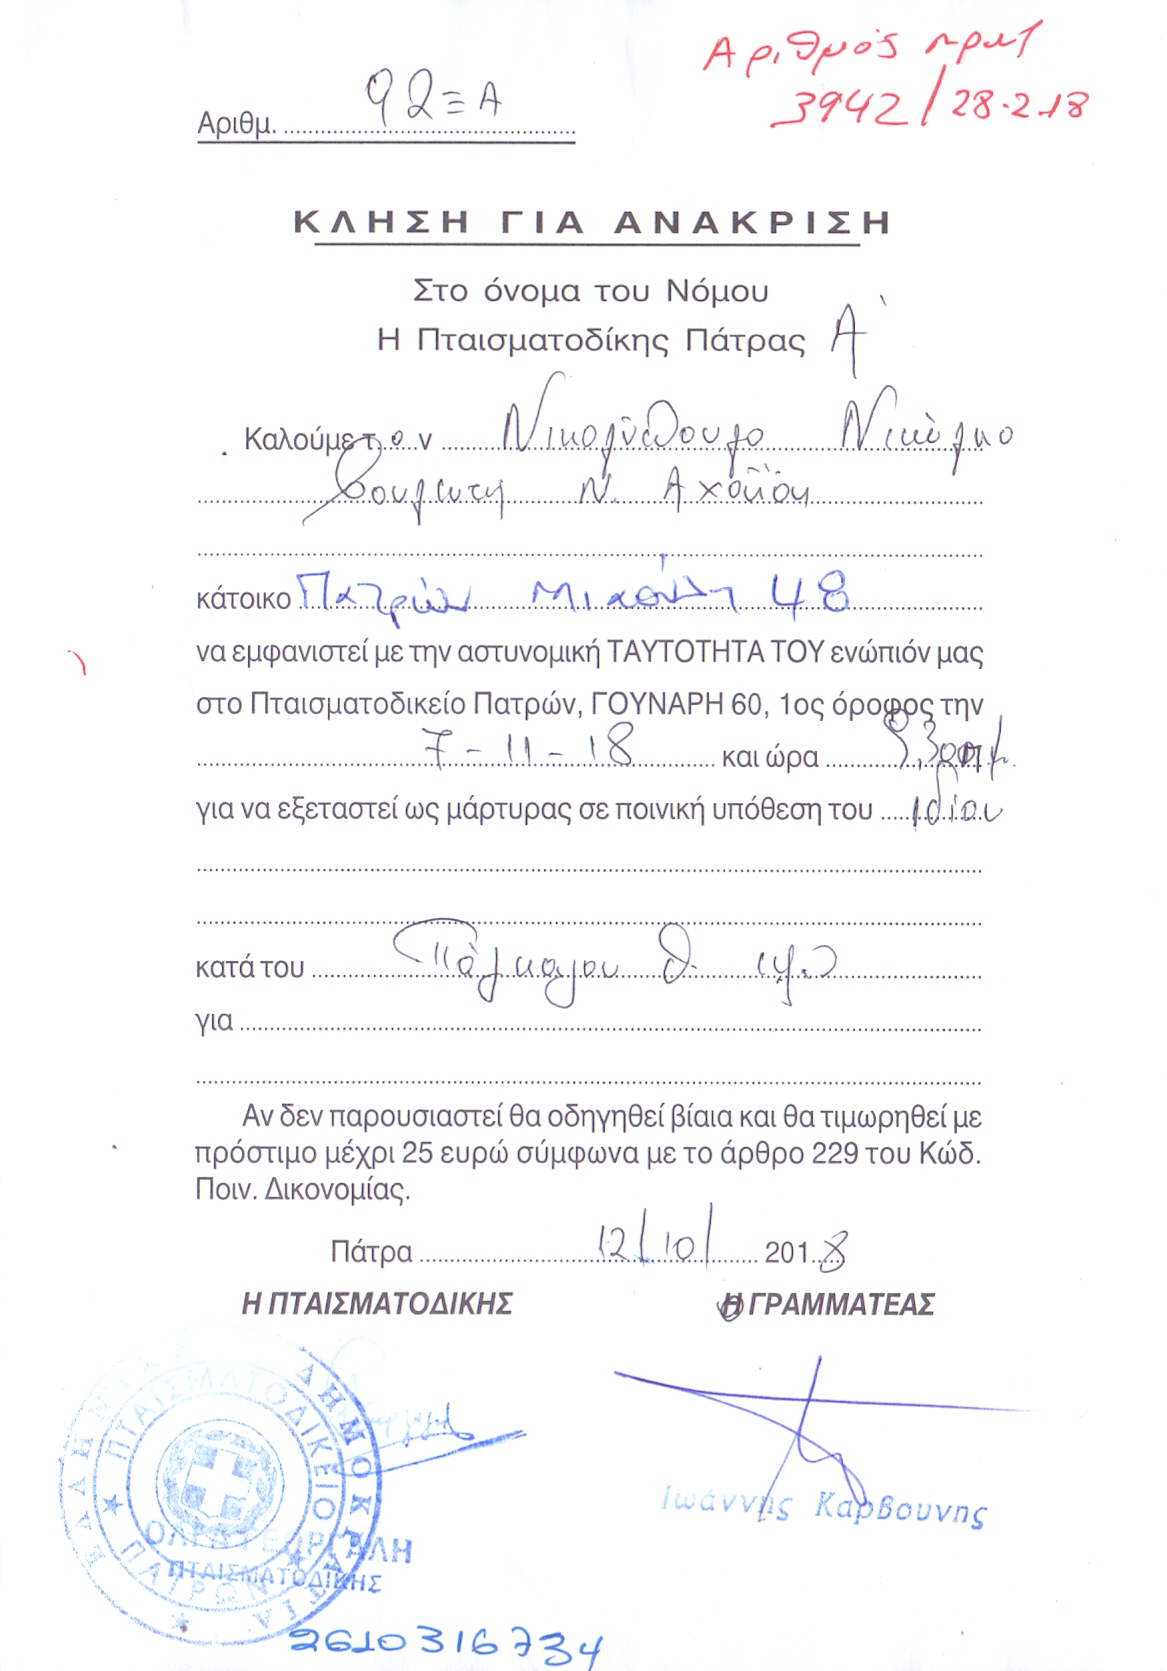 Αριθμός πρωτ
3942/28-2-18
Αριθμ. 92ΞΑ
ΚΛΗΣΗ ΓΙΑ ΑΝΑΚΡΙΣΗ
Στο όνομα του Νόμου
Η Πταισματοδίκης Πάτρας Α'
Καλούμε τ.ο.ν Νικολόπουλο Νικόλαο
βουλευτή Ν. Αχαΐας
κάτοικο Πατρών Μιαούλη 48
να εμφανιστεί με την αστυνομική ΤΑΥΤΟΤΗΤΑ ΤΟΥ ενώπιόν μας
στο Πταισματοδικείο Πατρών, ΓΟΥΝΑΡΗ 60, 1ος όροφος την
7-11-18 και ώρα
για να εξεταστεί ως μάρτυρας σε ποινική υπόθεση του ιδίου
κατά του
για
Αν δεν παρουσιαστεί θα οδηγηθεί βίαια και θα τιμωρηθεί με
πρόστιμο μέχρι 25 ευρώ σύμφωνα με το άρθρο 229 του Κώδ.
Ποιν. Δικονομίας.
Πάτρα 12/10/ 2018
Η ΠΤΑΙΣΜΑΤΟΔΙΚΗΣ Ο ΓΡΑΜΜΑΤΕΑΣ
ΕΛΛΗΝΙΚΗ ΔΗΜΟΚΡΑΤΙΑ
ΠΤΑΙΣΜΑΤΟΔΙΚΕΙΟ ΠΑΤΡΩΝ
Ιωάννης Καρβουνης
ΠΤΑΙΣΜΑΤΟΔΙΚΗΣ
2610316734